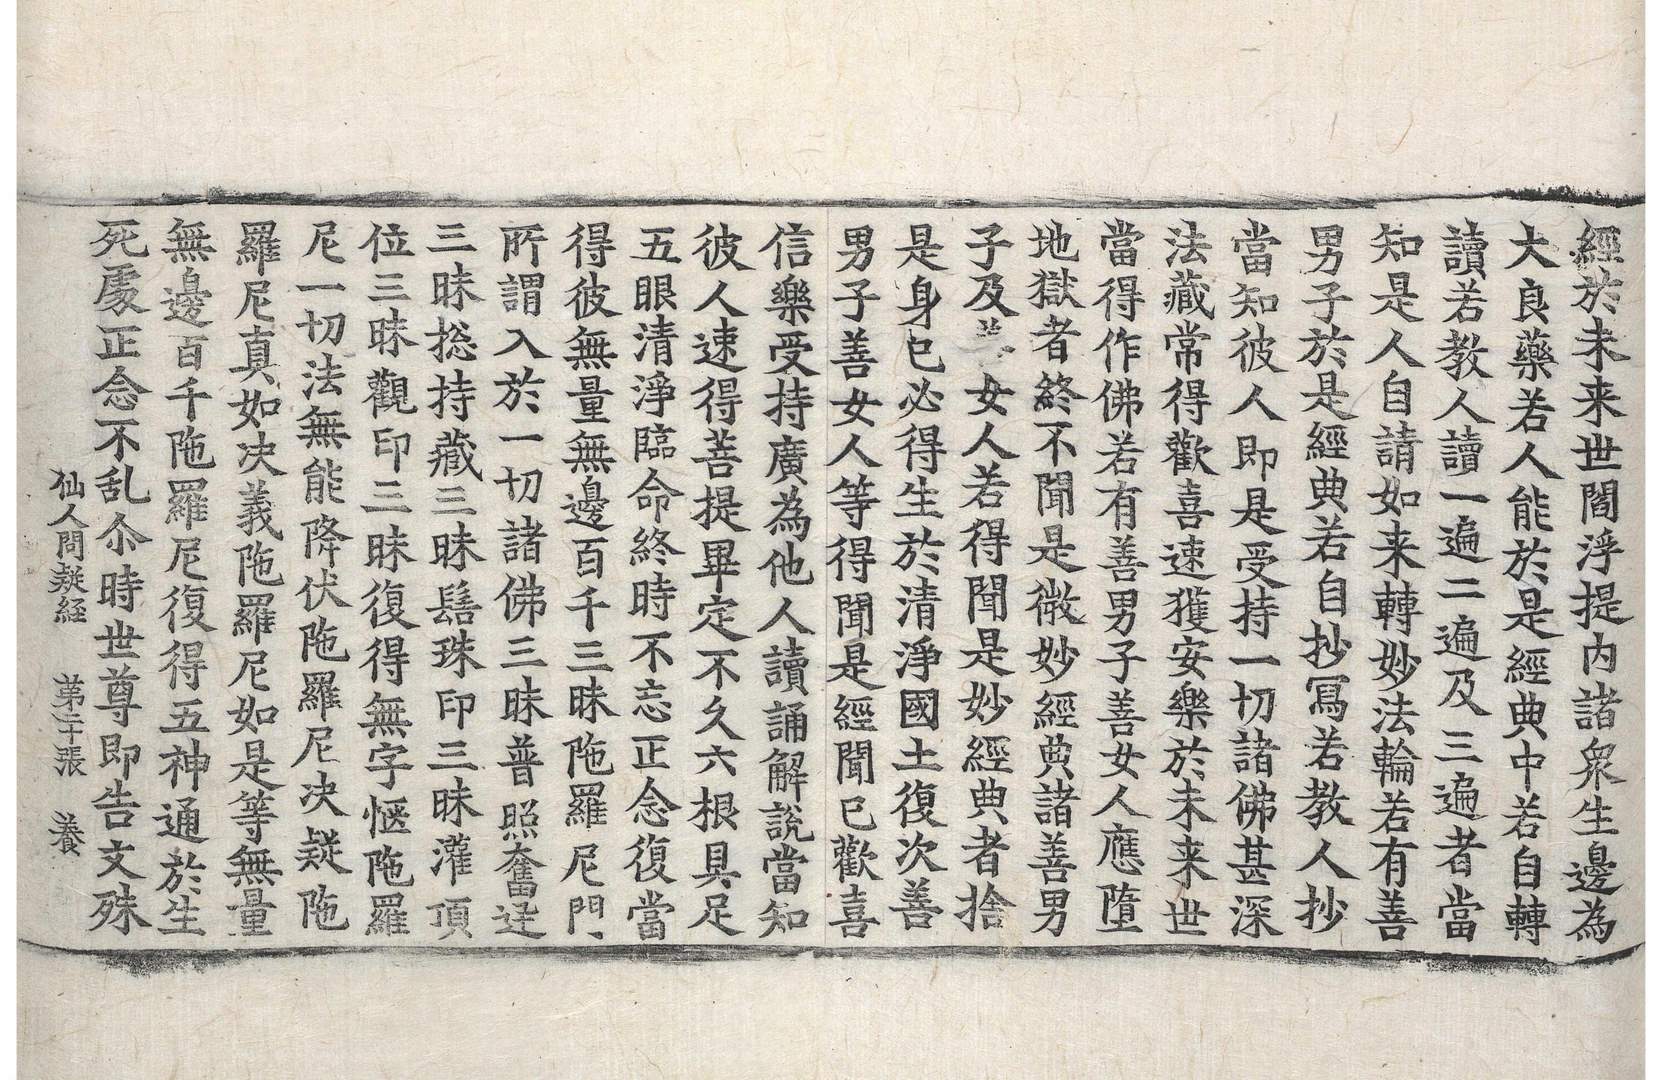 經於未来世閻浮提内諸衆生邊為
大良藥若人能於是經典中若自轉
讀若教人讀一遍二遍及三遍者當
知是人自請如来轉妙法輪若有善
男子於是經典若自抄冩若教人抄
當知彼人即是受持一切諸佛甚深
法藏常得歡喜速獲安樂於未来世
當得作佛若有善男子善女人應墮
地獄者終不聞是微妙經典諸善男
子及善女人若得聞是妙經典者捨
是身已必得生於清淨國土復次善
男子善女人等得聞是經聞已歡喜
信樂受持廣為他人讀誦解説當知
彼人速得菩提畢定不久六根具足
五眼清淨臨命終時不忘正念復當
得彼無量無邊百千三昧陁羅尼門
所謂入於一切諸佛三昧普照奮迅
三昧捴持藏三昧髻珠印三昧灌頂
位三昧觀印三昧復得無字愜陁羅
尼一切法無能降伏陁羅尼决疑陁
羅尼真如决義陁羅尼如是等無量
無邊百千陁羅尼復得五神通於生
死處正念不乱尒時世尊即告文殊
仙人問疑経 第二十張 養